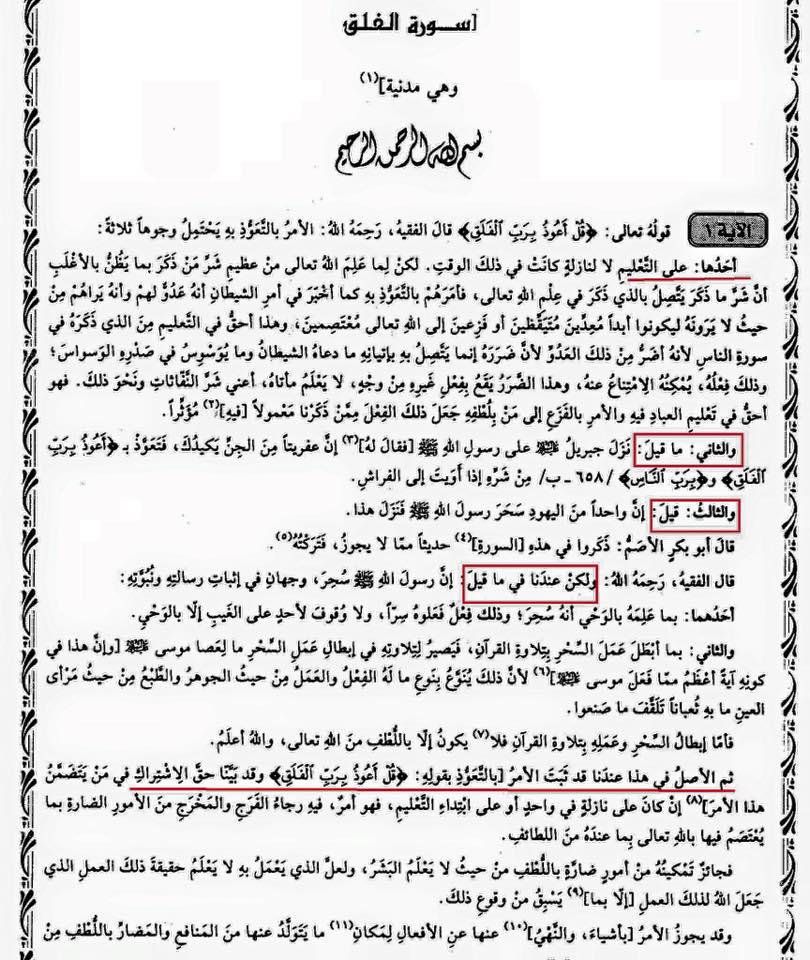 [سورة الفلق
وهي مدنية](١)
بسم الله الرحمن الرحيم
الآية ١ قولُهُ تعالى: ﴿قُلْ أَعُوذُ بِرَبِّ ٱلْفَلَقِ﴾ قالَ الفقيهُ، رَحِمَهُ اللهُ: الأمرُ بالتَّعَوُّذِ بِهِ يَحْتَمِلُ وجوهاً ثلاثةً:
أحَدُها: على التَّعْليمِ لا لنازلةٍ كانَتْ في ذلكَ الوقتِ. لكنْ لِما عَلِمَ اللهُ تعالى من عظيمِ شَرِّ مَنْ ذَكَرَ بما يَظُنُّ بالأغْلَبِ
أنَّ شَرَّ ما ذَكَرَ يَتَّصِلُ بالذي ذَكَرَ في عِلْمِ اللهِ تعالى، فأمَرَهُمْ بالتَّعَوُّذِ بِهِ كما أخْبَرَ في أمرِ الشيطانِ أنهُ عَدُوٌّ لهمْ وأنهُ يَراهُمْ مِنْ
حيثُ لا يَرَونَهُ ليكونوا أبداً مُعِدِّينَ مُتَيَقِّظينَ أو فَزِعينَ إلى اللهِ تعالى مُعْتَصِمينَ، وهذا أحقُّ في التعليمِ مِنَ الذي ذَكَرَهُ في
سورةِ الناسِ لأنهُ أضَرُّ مِنْ ذلكَ العَدُوِّ لأنَّ ضَرَرَهُ إنما يَتَّصِلُ بِهِ بإتيانِهِ ما دعاهُ الشيطانُ وما يُوَسْوِسُ في صَدْرِهِ الوَسواسُ؛
وذلكَ فِعْلُهُ، يُمْكِنُهُ الِامْتِناعُ عنهُ، وهذا الضَّرَرُ يَقَعُ بفِعْلِ غَيرِهِ مِنْ وجْهٍ، لا يَعْلَمُ مأتاهُ، أعني شَرَّ النَّفّاثاتِ ونَحْوَ ذلكَ. فهو
أحقُّ في تَعْليمِ العبادِ فيهِ والأمرِ بالفَزَعِ إلى مَنْ بِلُطْفِهِ جَعَلَ ذلكَ الفِعْلَ مِمَّنْ ذَكَرْنا مَعْمولاً [فيهِ](٢) مُؤَثِّراً.
والثاني: ما قيلَ: نَزَلَ جبريلُ ﷺ على رسولِ اللهِ ﷺ [فقالَ لهُ](٣) إنَّ عفريتاً مِنَ الجِنِّ يَكيدُكَ، فَتَعَوَّذْ بـ ﴿أَعُوذُ بِرَبِّ
ٱلْفَلَقِ﴾ و﴿بِرَبِّ ٱلنَّاسِ﴾ /٦٥٨ - ب/ مِنْ شَرِّهِ إذا أوَيتَ إلى الفراشِ.
والثالثُ: قيلَ: إنَّ واحداً منَ اليهودِ سَحَرَ رسولَ اللهِ ﷺ فَنَزَلَ هذا.
قالَ أبو بكرٍ الأصَمُّ: ذَكَروا في هذهِ [السورةِ](٤) حديثاً ممّا لا يجوزُ، فَتَرَكْتُهُ(٥).
قال الفقيهُ، رَحِمَهُ اللهُ: ولكنْ عندَنا في ما قيلَ: إنَّ رسولَ اللهِ ﷺ سُحِرَ، وجهانِ في إثباتِ رسالتِهِ ونُبُوَّتِهِ:
أحَدُهُما: بما عَلِمَهُ بالوَحْيِ أنهُ سُحِرَ؛ وذلكَ فِعْلٌ فَعَلوهُ سِرّاً، ولا وُقوفَ لأحدٍ على الغَيبِ إلّا بالوَحْيِ.
والثاني: بما أبْطَلَ عَمَلَ السِّحْرِ بِتِلاوةِ القرآنِ، فَيَصيرُ لِتِلاوتِهِ في إبطالِ عَمَلِ السِّحْرِ ما لِعَصا موسى ﷺ [وإنَّ هذا في
كونِهِ آيةً أعْظَمُ ممّا فَعَلَ موسى ﷺ](٦) لأنَّ ذلكَ يُنَوَّعُ بنَوعِ ما لَهُ الفِعْلُ والعَمَلُ مِنْ حيثُ الجوهرُ والطَّبْعُ مِنْ حيثُ مَرْأى
العينِ ما بِهِ ثُعباناً تَلَقَّفَ ما صَنعوا.
فأمّا إبطالُ السِّحْرِ وعَمَلِهِ بتِلاوةِ القرآنِ فلا(٧) يكونُ إلّا باللُّطْفِ منَ اللهِ تعالى، واللهُ أعلَمُ.
ثم الأصلُ في هذا عندَنا قد ثَبَتَ الأمرُ [بالتَّعَوُّذِ بقولِهِ: ﴿قُلْ أَعُوذُ بِرَبِّ ٱلْفَلَقِ﴾ وقد بَيَّنّا حقَّ الِاشْتِراكِ في مَنْ يَتَضَمَّنُ
هذا الأمرَ](٨) إنْ كانَ على نازلةٍ في واحدٍ أو على ابْتِداءِ التَّعْليمِ، فهو أمرٌ، فيهِ رجاءُ الفَرَجِ والمَخْرَجِ منَ الأمورِ الضارةِ بما
يُعْتَصَمُ فيها باللهِ تعالى بِما عندَهُ منَ اللطائفِ.
فجائزٌ تَمْكينُهُ مِنْ أمورٍ ضارّةٍ باللُّطْفِ مِنْ حيثُ لا يَعْلَمُ البَشَرُ، ولعلَّ الذي يَعْمَلُ بهِ لا يَعْلَمُ حقيقةَ ذلكَ العملِ الذي
جَعَلَ اللهُ لذلكَ العملِ [إلّا بما](٩) يَسْبِقُ مِنْ وقوعِ ذلكَ.
وقد يجوزُ الأمرُ [بأشياءَ، والنَّهْيُ](١٠) عنها عنِ الأفعالِ لِمَكانِ(١١) ما يَتَوَلَّدُ عنها منَ المَنافعِ والمَضارِّ باللُّطْفِ مِنْ